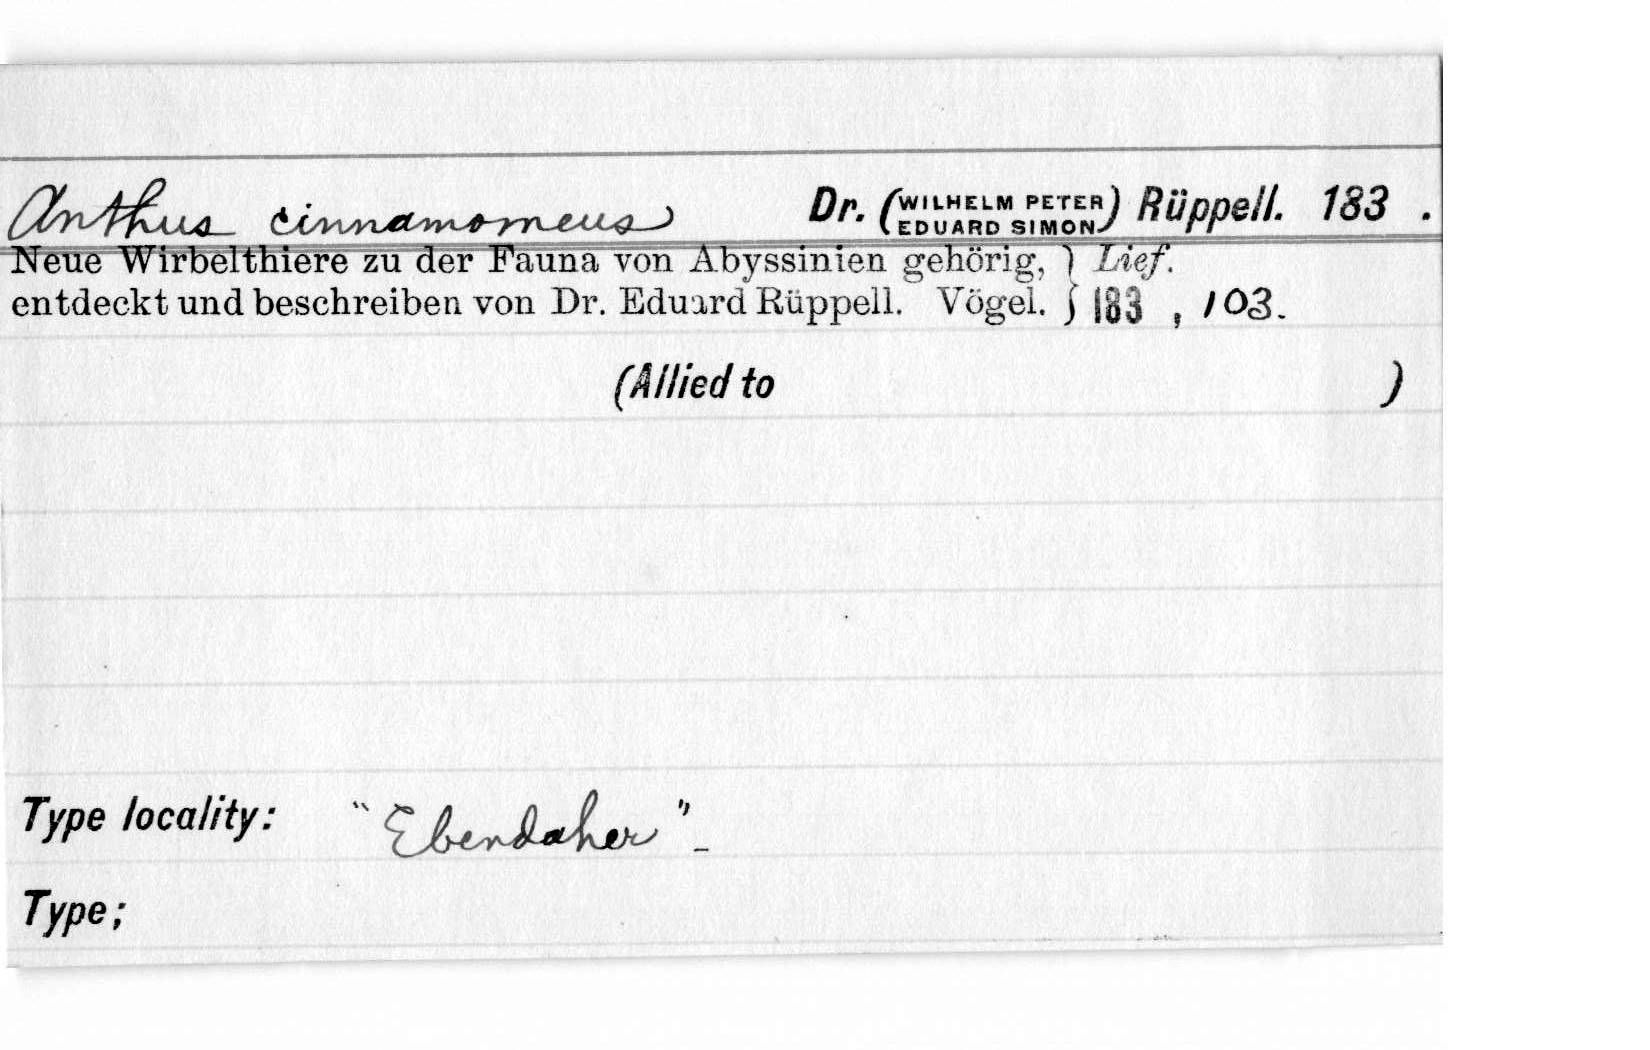 Anthus cinnamomeus Dr. (WILHELM PETER EDUARD SIMON) Rüppell. 183 .
Neue Wirbelthiere zu der Fauna von Abyssinien gehörig, } Lief.
entdeckt und beschreiben von Dr. Eduard Rüppell. Vögel. } 183 , 103.
(Allied to )
Type locality: "Ebendaher"_
Type;